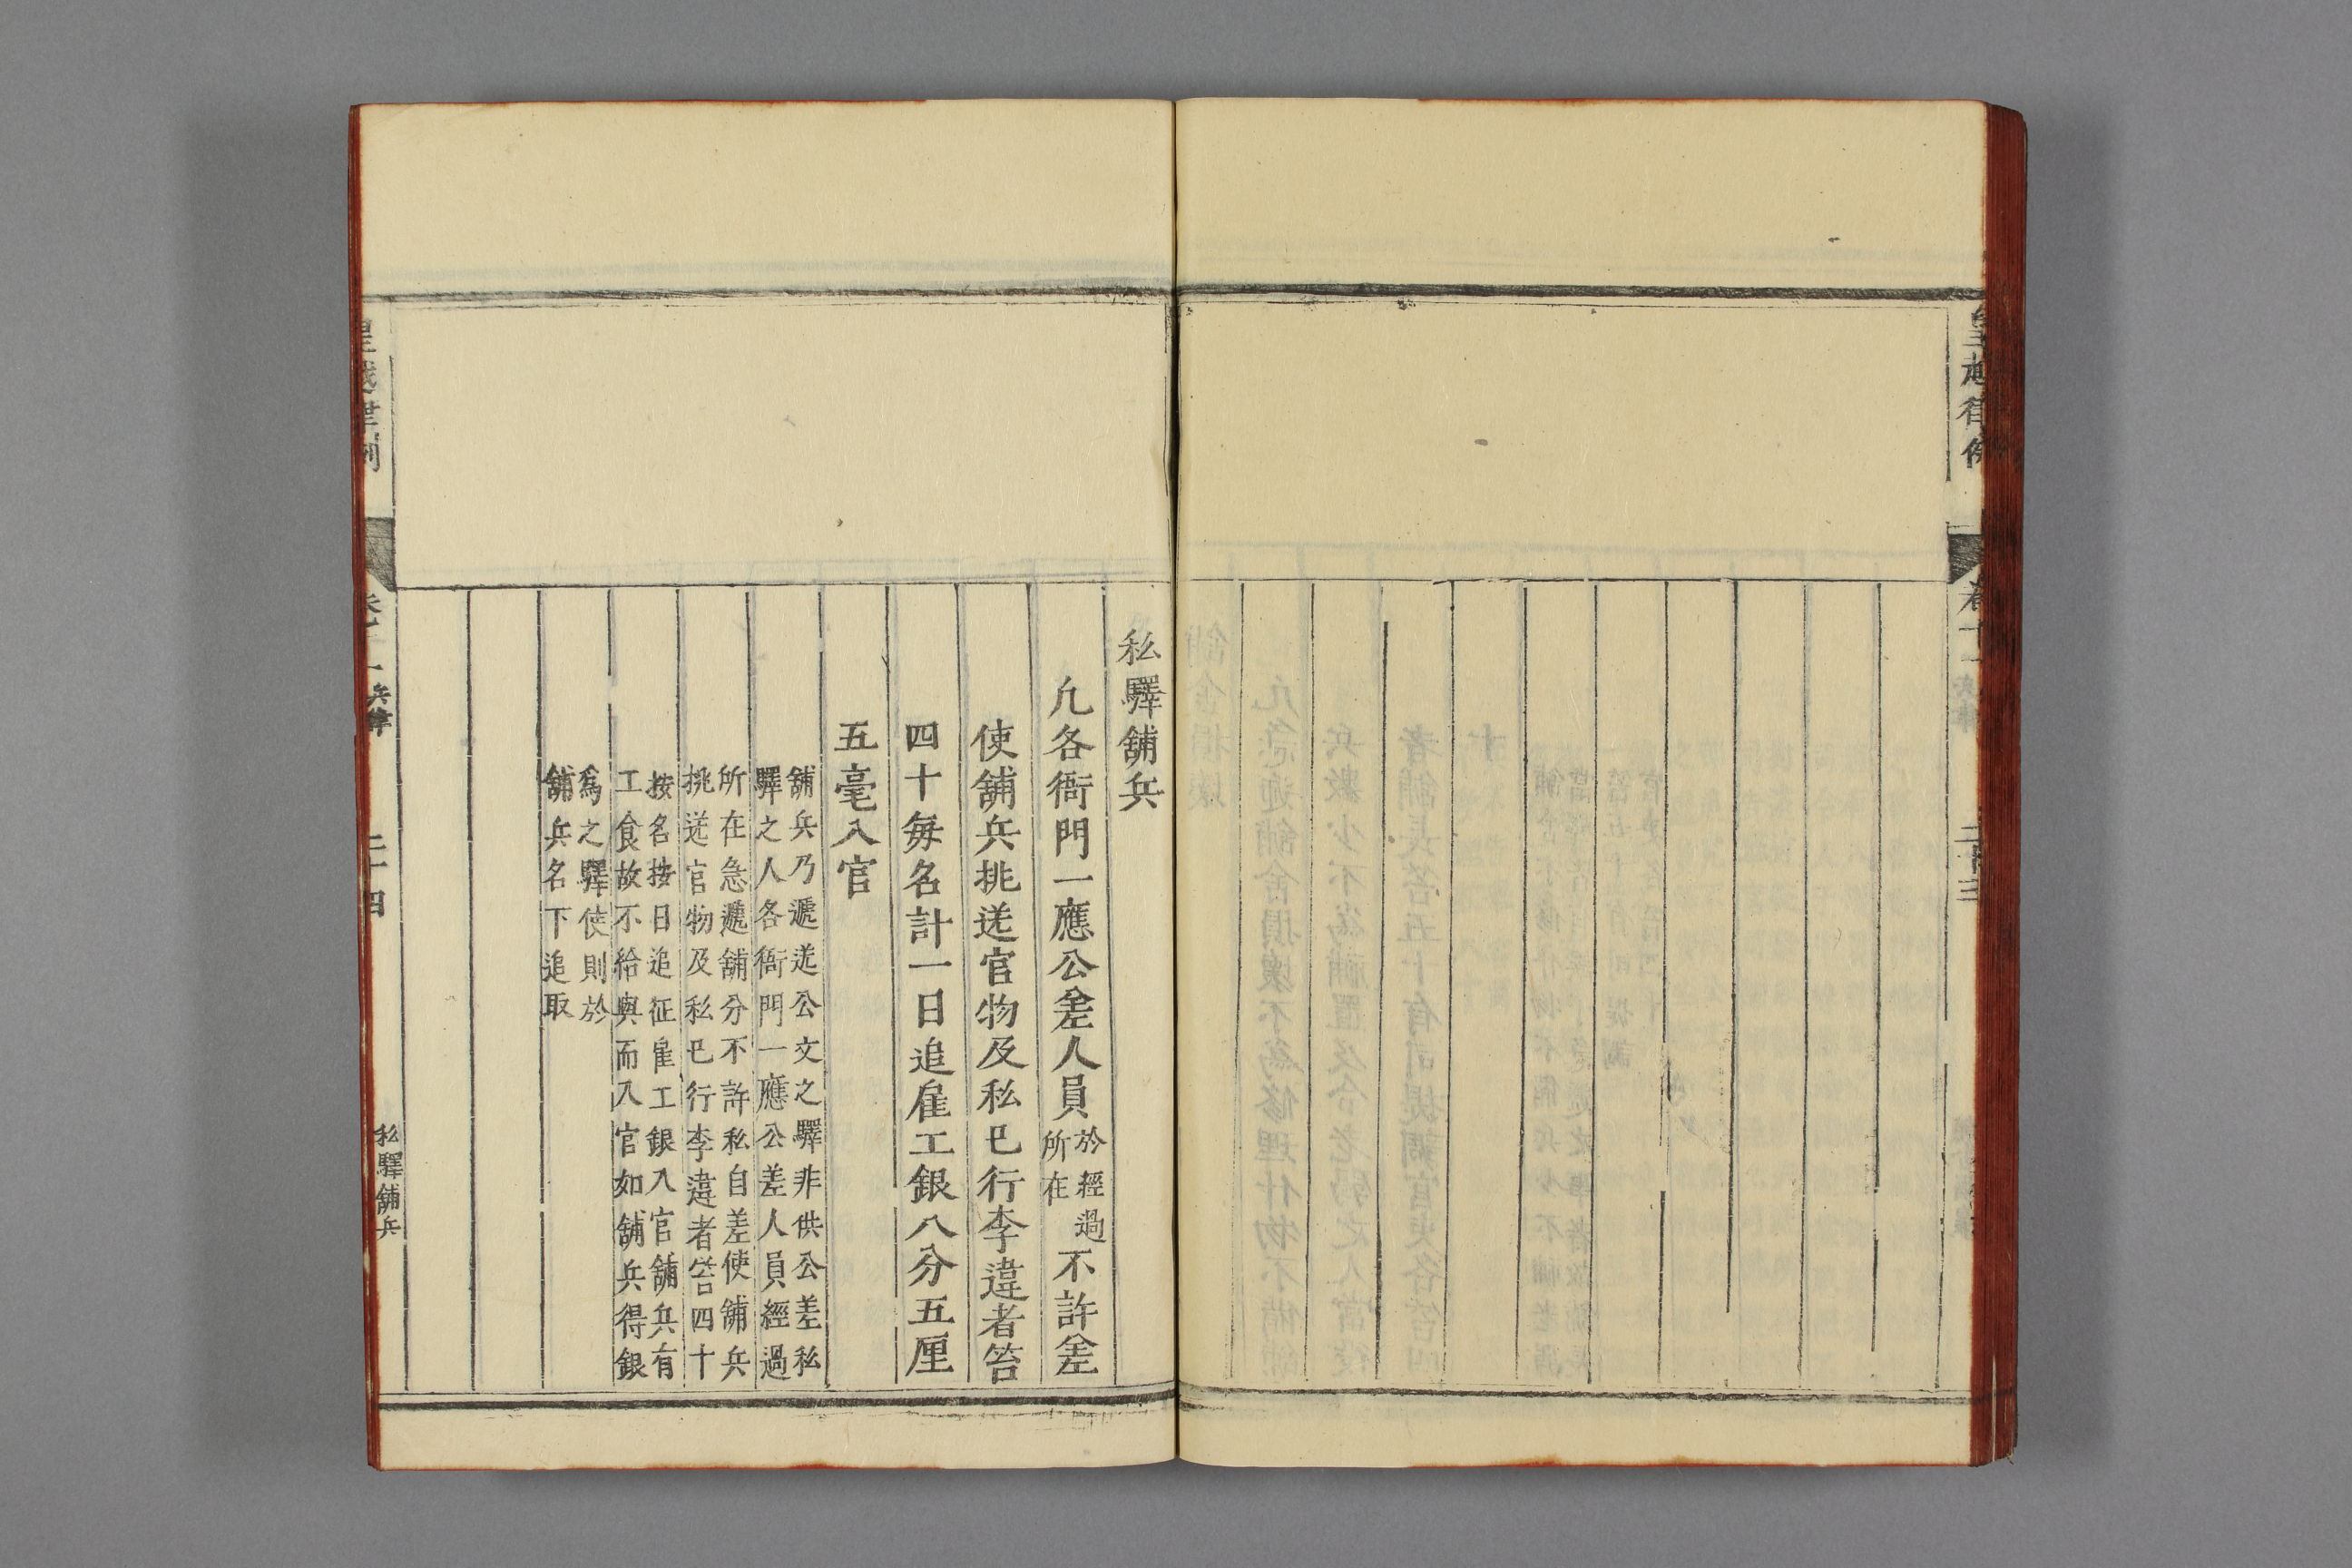 皇越律例
卷十一
私驛舖兵
凢各衙門一應公差人員於經過所在不許差
使舖兵挑送官物及私已行李違者笞
四十每名計一日追雇工銀八分五厘
五毫入官
舖兵乃遞送公文之驛非供公差私
驛之人各衙門一應公差人員經過
所在急遞舖分不許私自差使舖兵
挑送官物及私已行李違者笞四十
按名按日追征雇工銀入官舖兵有
工食故不給與而入官如舖兵得銀
爲之驛使則於
舖兵名下追取
皇越律例
卷十一
兵律
二十四
私驛舖兵